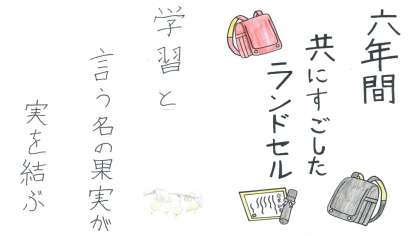 六年間
共にすごした
ランドセル
学習と
言う名の果実が
実を結ぶ